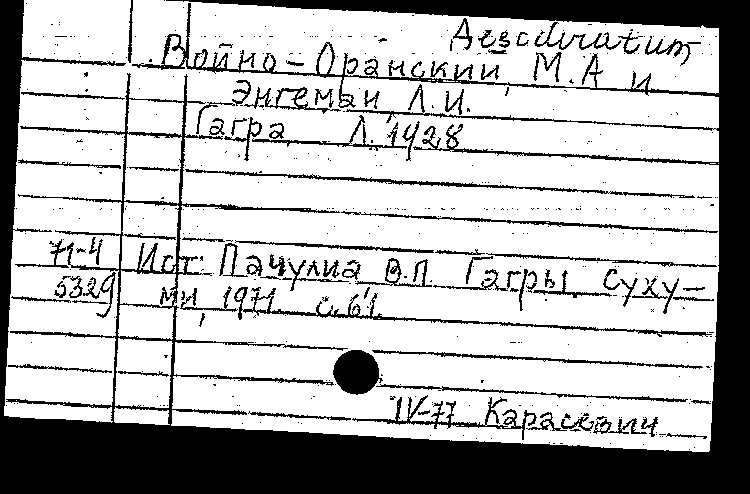 Дезсdиratum
Войно-Оранский, М.А и
Энгеман, Л.И.
Гагра Л. 1928
71-4 Ист: Пачулиа В.П. Гагры. Суху-
5329 ми, 1971. с. 61.
IV-77 Карасевич